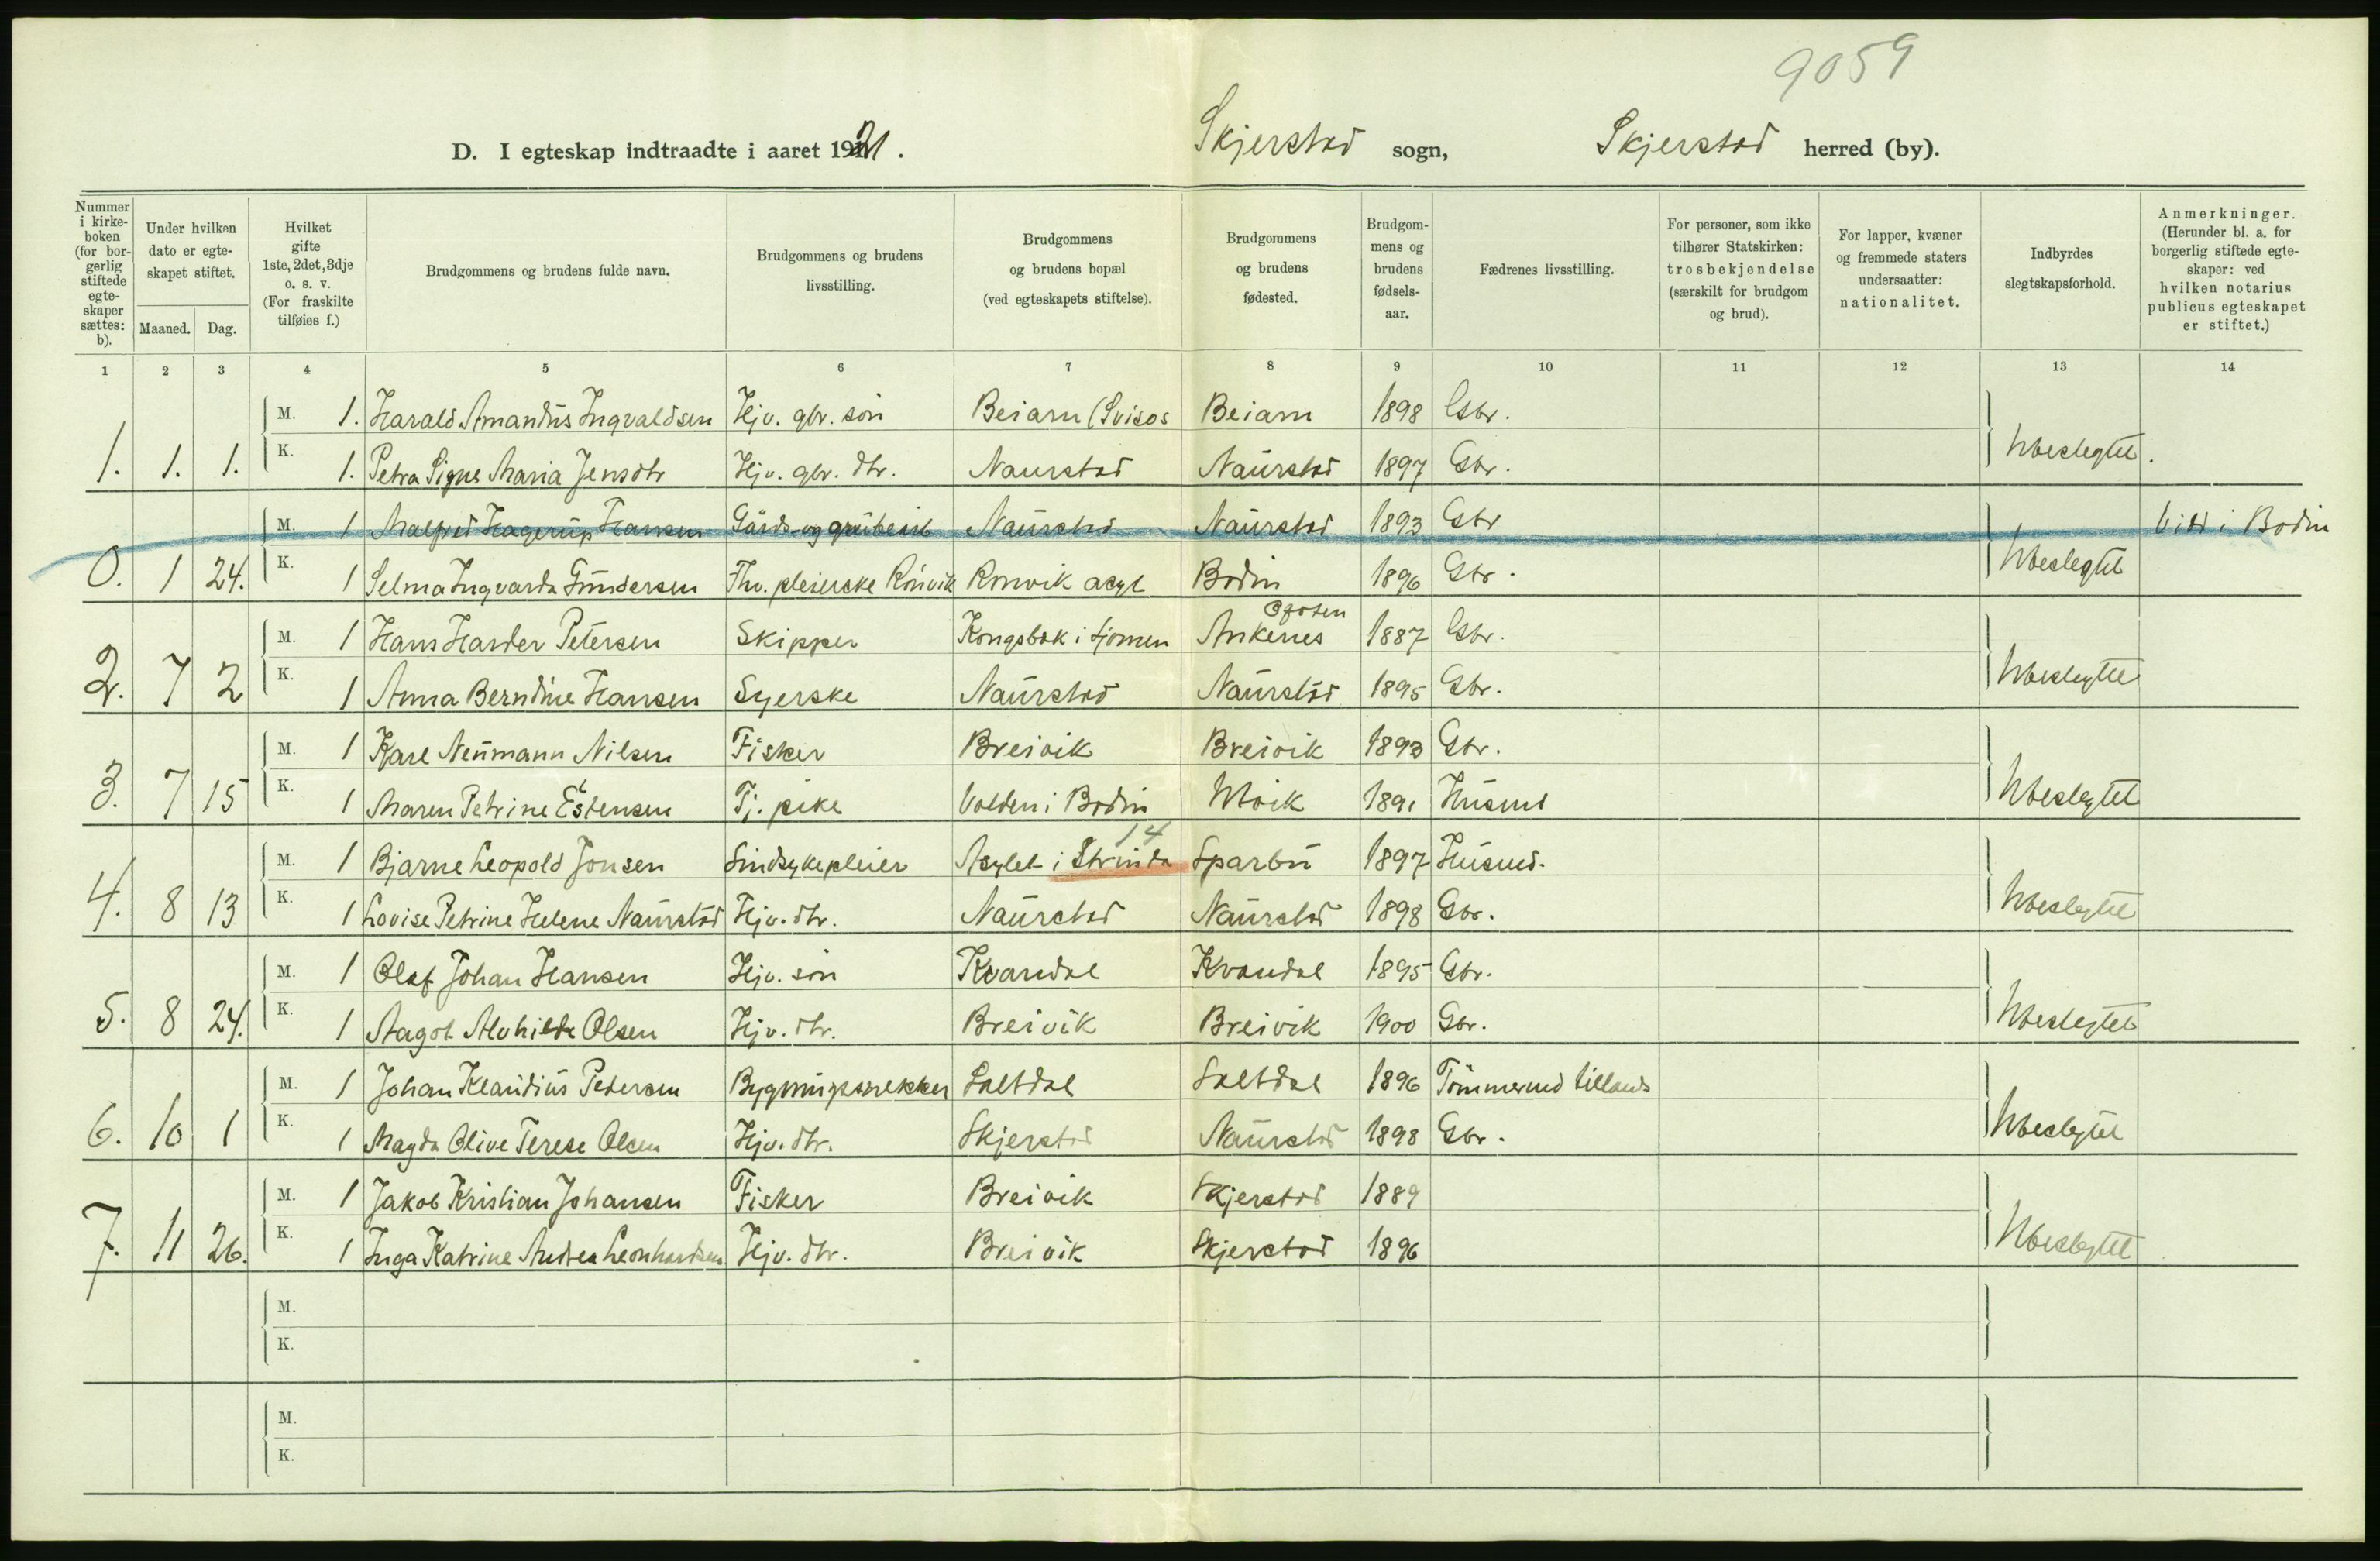 9059
D. I egteskap indtraadte i aaret 1921. Skjerstad sogn, Skjerstad herred (by).
Nummer i kirke-boken (for bor-gerlig stiftede egte-skaper sættes: b).
Under hvilken dato er egte-skapet stiftet.
Maaned. Dag.
Hvilket gifte 1ste, 2det, 3dje o. s. v. (For fraskilte tilføies f.)
Brudgommens og brudens fulde navn.
Brudgommens og brudens livsstilling.
Brudgommens og brudens bopæl (ved egteskapets stiftelse).
Brudgommens og brudens fødested.
Brudgom-mens og brudens fødsels-aar.
Fædrenes livsstilling.
For personer, som ikke tilhører Statskirken: trosbekjendelse (særskilt for brudgom og brud).
For lapper, kvæner og fremmede staters undersaatter: nationalitet.
Indbyrdes slegtskapsforhold.
Anmerkninger. (Herunder bl. a. for borgerlig stiftede egte-skaper: ved hvilken notarius publicus egteskapet er stiftet.)
1 2 3 4 5 6 7 8 9 10 11 12 13 14
M. 1. Harald Amandus Ingvaldsen Hjv. gbr. søn Beiarn (Svisos Beiarn 1898 Gbr.
1. 1. 1. K. 1. Petra Signe Maria Jensdtr Hjv. gbr. dtr. Naurstad Naurstad 1897 Gbr. Ubeslegtet.
M. 1 Malfred Hagerup Hansen Gårds- og Naurstad Naurstad 1893 Gbr Viet i Bodin
0. 1 24. K. 1 Selma Ingvarda Gundersen Fhv. pleierske Rønvik Rønvik asyl Bodin 1896 Gbr. Ubeslegtet
M. 1 Hans Harder Petersen Skipper Kongsbak i Tjomen Ankenes Ofoten 1887 Gbr.
2. 7 2 K. 1 Anna Berndine Hansen Syerske Naurstad Naurstad 1895 Gbr. Ubeslegtet
M. 1 Karl Neumann Nilsen Fisker Breivik Breivik 1893 Gbr.
3. 7 15 K. 1 Maren Petrine Estensen Tj. pike Valden i Bodin Utvik 1891 Husmd Ubeslegtet
14
M. 1 Bjarne Leopold Jonsen Sindsykepleier Asylet i Strinda Sparbu 1897 Husmd.
4. 8 13 K. 1 Lovise Petrine Helene Naurstad Hjv. dtr. Naurstad Naurstad 1898 Gbr. Ubeslegtet
M. 1 Olaf Johan Hansen Hjv. søn Kvandal Kvandal 1895 Gbr.
5. 8 24. K. 1 Aagot Alvhilde Olsen Hjv. dtr. Breivik Breivik 1900 Gbr. Ubeslegtet
M. 1 Johan Klaudius Pedersen Bygningssnekker Saltdal Saltdal 1896 Tømmermd tillands
6. 10 1 K. 1 Magda Olive Terese Olsen Hjv. dtr. Skjerstad Naurstad 1898 Gbr. Ubeslegtet
M. 1 Jakob Kristian Johansen Fisker Breivik Skjerstad 1889
7. 11 26. K. 1 Inga Katrine Andrea Leonhardsen Hjv. dtr. Breivik Skjerstad 1896 Ubeslegtet
M.
K.
M.
K.